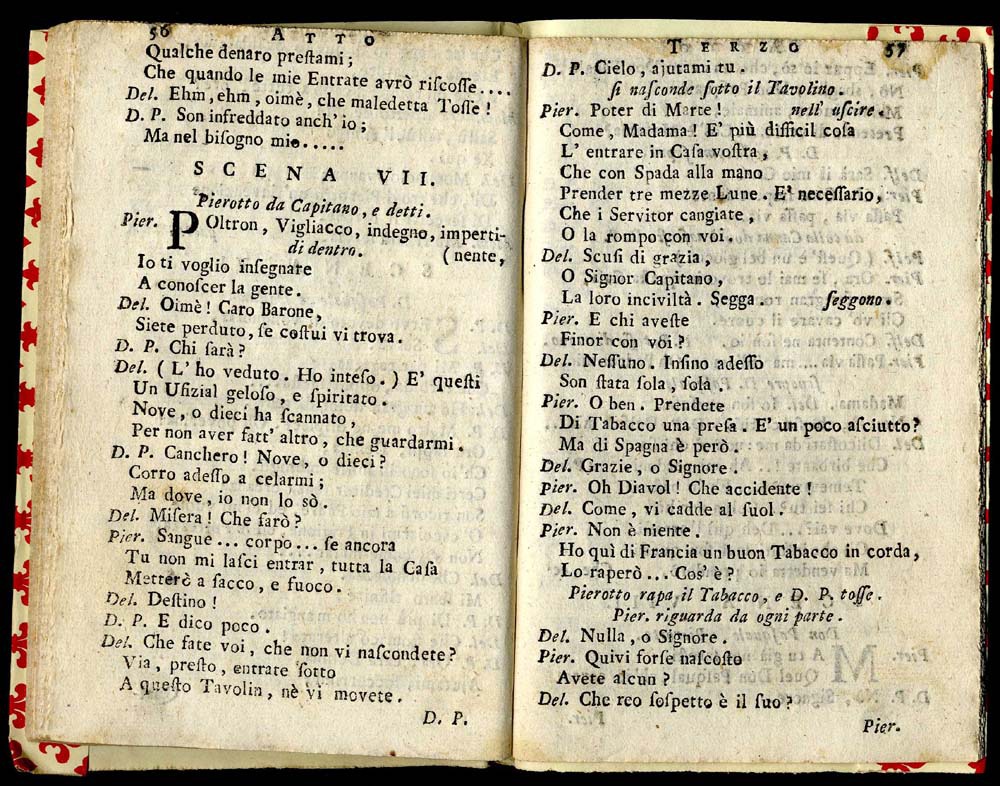 56 ATTO
Qualche denaro preſtami;
Che quando le mie Entrate avrò riſcoſſe....
Del. Ehm, ehm, oimè, che maledetta Toſſe!
D. P. Son infreddato anch' io;
Ma nel biſogno mio.....
SCENA VII.
Pierotto da Capitano, e detti.
Pier. POltron, Vigliacco, indegno, imperti-
di dentro. (nente,
Io ti voglio inſegnare
A conoſcer la gente.
Del. Oimè! Caro Barone,
Siete perduto, ſe coſtui vi trova.
D. P. Chi ſarà?
Del. (L' ho veduto. Ho inteſo.) E' queſti
Un Ufizial geloſo, e ſpiritato.
Nove, o dieci ha ſcannato,
Per non aver fatt' altro, che guardarmi.
D. P. Canchero! Nove, o dieci?
Corro adeſſo a celarmi;
Ma dove, io non lo sò.
Del. Miſera! Che farò?
Pier. Sangue... corpo... ſe ancora
Tu non mi laſci entrar, tutta la Caſa
Metterò a ſacco, e fuoco.
Del. Deſtino!
D. P. E dico poco.
Del. Che fate voi, che non vi naſcondete?
Via, preſto, entrate ſotto
A queſto Tavolin, nè vi movete.
D. P.
TERZO 57
D. P. Cielo, ajutami tu.
ſi naſconde ſotto il Tavolino.
Pier. Poter di Marte! nell' uſcire.
Come, Madama! E' più difficil coſa
L' entrare in Caſa voſtra,
Che con Spada alla mano
Prender tre mezze Lune. E' neceſſario,
Che i Servitor cangiate,
O la rompo con voi.
Del. Scuſi di grazia,
O Signor Capitano,
La loro inciviltà. Segga. ſeggono.
Pier. E chi aveſte
Finor con voi?
Del. Neſſuno. Inſino adeſſo
Son ſtata ſola, ſola.
Pier. O ben. Prendete
Di Tabacco una preſa. E' un poco aſciutto?
Ma di Spagna è però.
Del. Grazie, o Signore.
Pier. Oh Diavol! Che accidente!
Del. Come, vi cadde al ſuol.
Pier. Non è niente.
Ho quì di Francia un buon Tabacco in corda,
Lo raperò... Cos' è?
Pierotto rapa il Tabacco, e D. P. toſſe.
Pier. riguarda da ogni parte.
Del. Nulla, o Signore.
Pier. Quivi forſe naſcoſto
Avete alcun?
Del. Che reo ſoſpetto è il ſuo?
Pier.